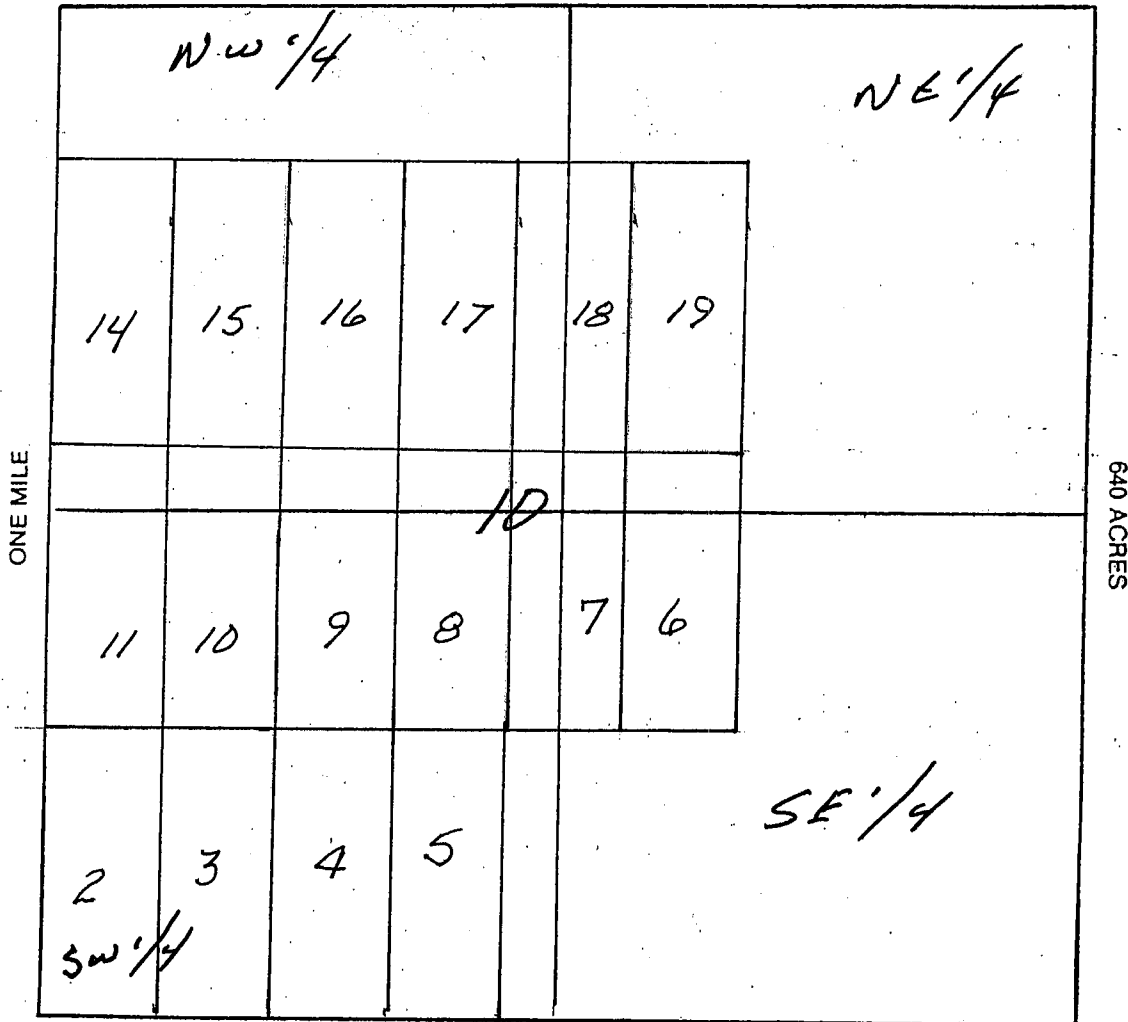 NW 1/4
NE 1/4
14 15 16 17 18 19
ONE MILE
10
640 ACRES
11 10 9 8 7 6
SE 1/4
2 3 4 5
SW 1/4